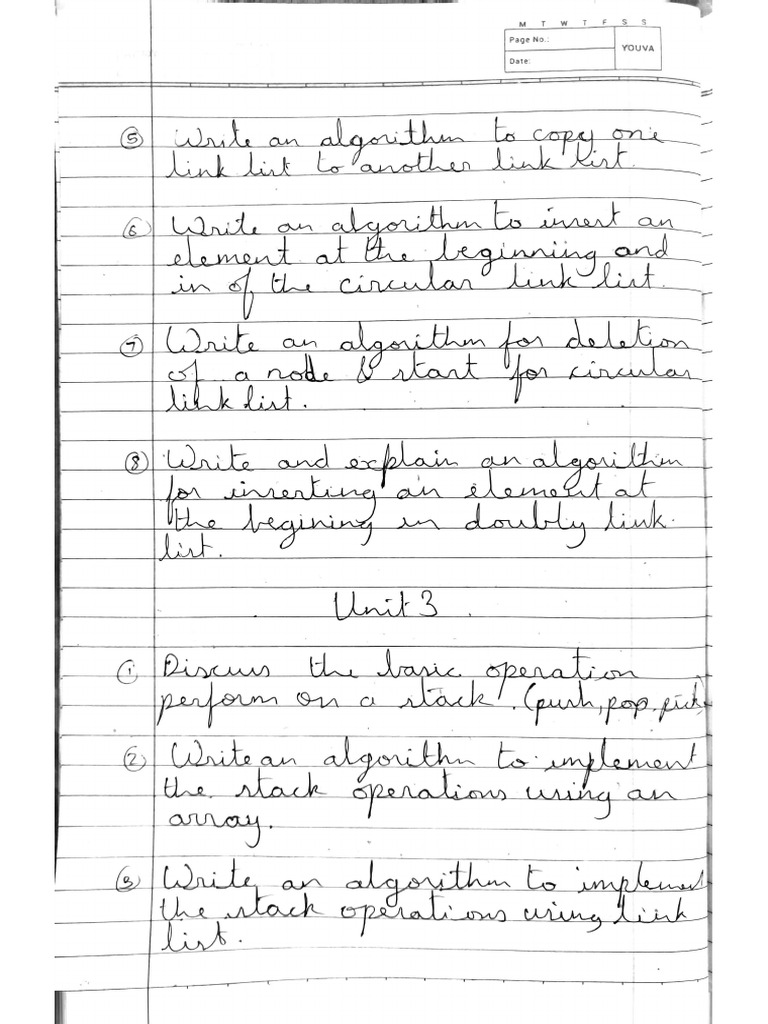 M T W T F S S
Page No.:
YOUVA
Date:
⑤ Write an algorithm to copy one
link list to another link list.
⑥ Write an algorithm to insert an
element at the beginning and
in of the circular link list.
⑦ Write an algorithm for deletion
of a node & start for circular
link list.
⑧ Write and explain an algorithm
for inserting an element at
the begining in doubly link
list.
Unit 3
① Discuss the basic operation
perform on a stack. (push, pop,
② Write an algorithm to implement
the stack operations using an
array.
③ Write an algorithm to implement
the stack operations using link
list.